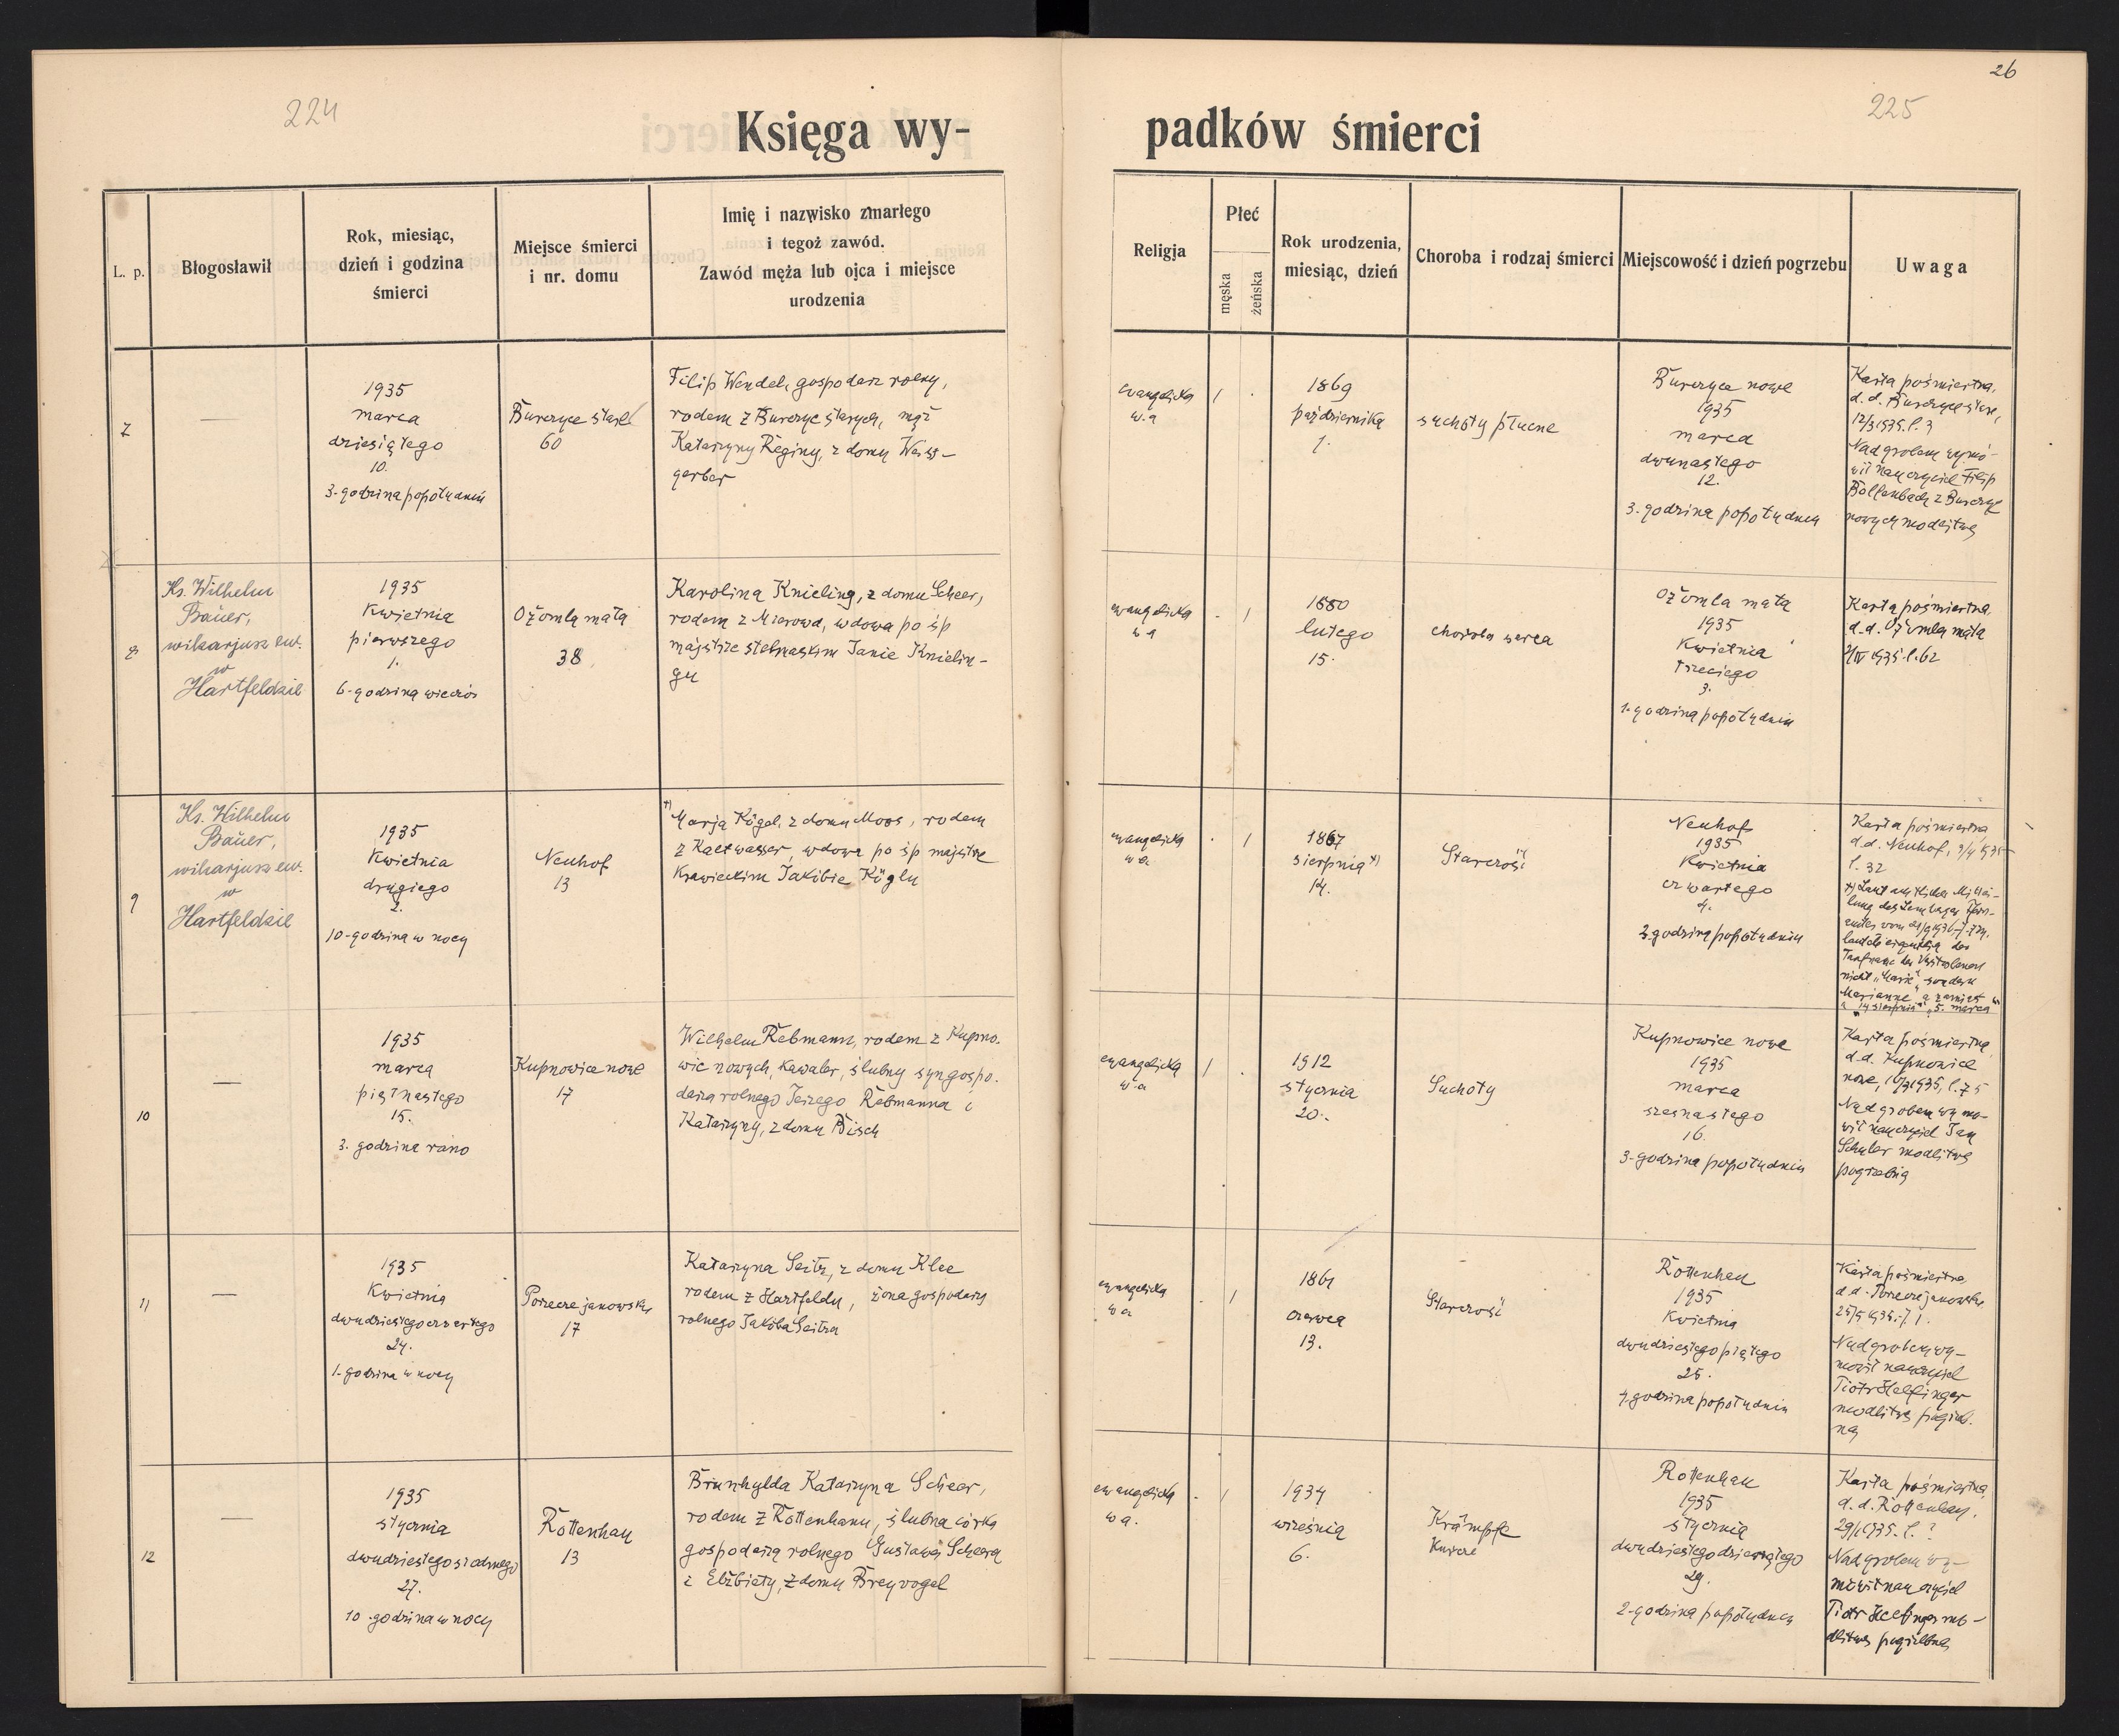 26
224
225
Księga wy-
padków śmierci
L. p.
Błogosławił
Rok, miesiąc,
dzień i godzina
śmierci
Miejsce śmierci
i nr. domu
Imię i nazwisko zmarłego
i tegoż zawód.
Zawód męża lub ojca i miejsce
urodzenia
Religja
Płeć
męska
żeńska
Rok urodzenia,
miesiąc, dzień
Choroba i rodzaj śmierci
Miejscowość i dzień pogrzebu
Uwaga
7
—
1935
marca
dziesiątego
10.
3. godzina popołudniu
Burczyce stare
60
Filip Wendel, gospodarz rolny,
rodem z Burczyc starych, mąż
Katarzyny Reginy, z domu Weiss-
gerber
ewangelicka
w. a
1
.
1869
października
1.
suchoty płucne
Burczyce nowe
1935
marca
dwunastego
12.
3. godzina popołudniu
Karta pośmiertna,
d. d. Burczyce stare,
12/3 1935. l. 3
Nad grobem wymó-
wił nauczyciel Filip
Bollenbach z Burczyc
nowych modlitwę
8
Ks. Wilhelm
Bauer,
wikarjusz ew.
w
Hartfeldzie
1935
kwietnia
pierwszego
1.
6. godzina wieczór
Ożomla mała
38
Karolina Knieling, z domu Scheer,
rodem z Mierowa, wdowa po śp
majstrze stelmaskim Janie Knielin-
gu
ewangelicka
w a
.
1
1880
lutego
15.
choroba serca
Ożomla mała
1935
kwietnia
trzeciego
3.
1. godzina popołudniu
Karta pośmiertna
d. d. Ożomla mała
2/IV 1935. l. 62
9
Ks. Wilhelm
Bauer,
wikarjusz ew.
w
Hartfeldzie
1935
kwietnia
drugiego
2.
10. godzina w nocy
Neuhof
13
*) Marja Kögel, z domu Moos, rodem
z Kaltwasser, wdowa po śp majstrze
krawieckim Jakóbie Köglu
ewangelicka
w a.
.
1
1867
sierpnia *)
14.
Starość
Neuhof
1935
kwietnia
czwartego
4.
2. godzina popołudniu
Karta pośmiertna
d. d. Neuhof, 3/4 1935
l. 32
*) Laut amtlicher Mittei-
lung des Lemberger
lautete eigentlich der
Taufname der Verstorbenen
nicht „Marie", sondern
Marianne, a zamiast
„14 sierpnia" „5. marca"
10
—
1935
marca
piętnastego
15.
3. godzina rano
Kupnowice nowe
17
Wilhelm Rebmann, rodem z Kupno-
wic nowych, kawaler, ślubny syn gospo-
darza rolnego Jerzego Rebmanna i
Katarzyny, z domu Bisch
ewangelicka
w. a
1
.
1912
stycznia
20.
Suchoty
Kupnowice nowe
1935
marca
szesnastego
16.
3. godzina popołudniu
Karta pośmiertna
d. d. Kupnowice
nowe, 1935, l. 75
Nad grobem wymó-
wił nauczyciel Jan
Schuler modlitwę
pogrzebną
11
—
1935
kwietnia
dwudziestego czwartego
24.
1. godzina w nocy
Porzecze janowskie
17
Katarzyna Seitz, z domu Klee
rodem z Hartfeldu, żona gospodarza
rolnego Jakóba Seitza
ewangelicka
w a
.
1
1861
czerwca
13.
Starość
Rottenhan
1935
kwietnia
dwudziestego piątego
25.
4. godzina popołudniu
Karta pośmiertna
d. d. Porzecze janowskie
25/4 1935. l. 1.
Nad grobem wy-
mówił nauczyciel
Piotr Helfinger
modlitwę pogrzeb-
ną
12
—
1935
stycznia
dwudziestego siódmego
27.
10. godzina w nocy
Rottenhan
13
Brunhylda Katarzyna Scheer,
rodem z Rottenhanu, ślubna córka
gospodarza rolnego Gustawa Scheera
i Elżbiety, z domu Breyvogel
ewangelicka
w a.
.
1
1934
września
6.
Krämpfe
Kurcze
Rottenhan
1935
stycznia
dwudziestego dziewiątego
29.
2. godzina popołudniu
Karta pośmiertna
d. d. Rottenhan,
29/1 1935. l. ?
Nad grobem wy-
mówił nauczyciel
Piotr Helfinger mo-
dlitwę pogrzebną